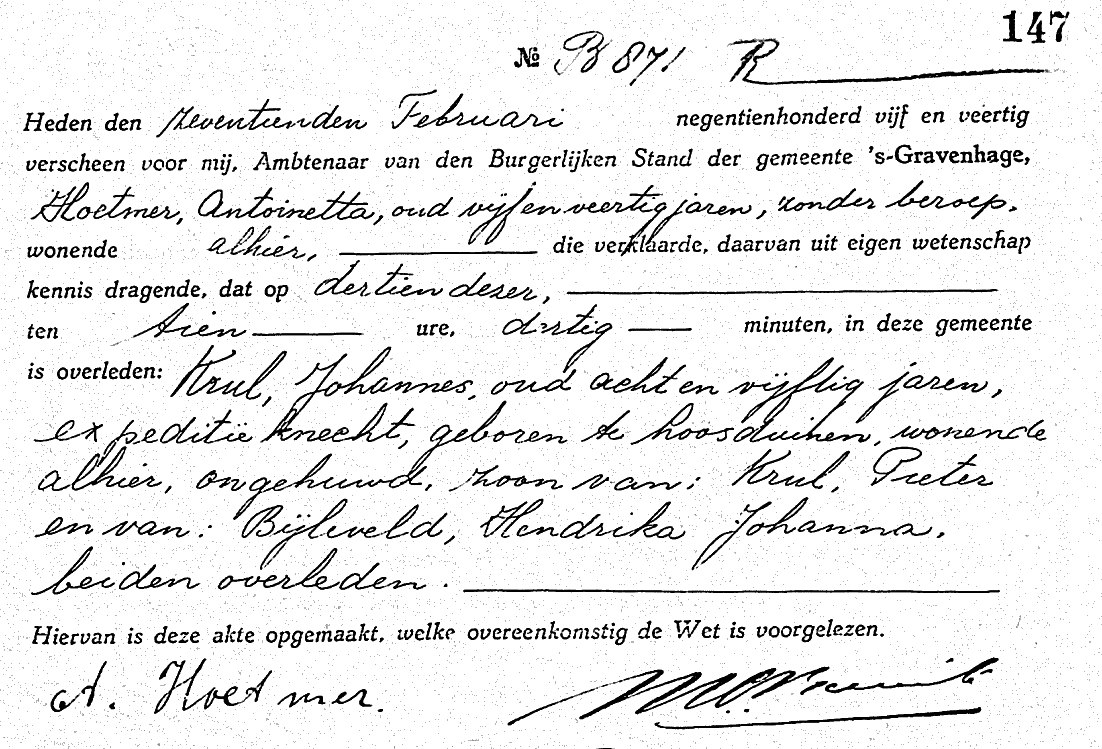 147
№ B 871 R
Heden den zeventienden Februari negentienhonderd vijf en veertig
verscheen voor mij, Ambtenaar van den Burgerlijken Stand der gemeente 's-Gravenhage,
Hoetmer, Antoinetta, oud vijf en veertig jaren, zonder beroep,
wonende alhier, die verklaarde, daarvan uit eigen wetenschap
kennis dragende, dat op dertien dezer,
ten tien ure, dertig minuten, in deze gemeente
is overleden: Krul, Johannes, oud acht en vijftig jaren,
expeditie knecht, geboren te Loosduinen, wonende
alhier, ongehuwd, zoon van: Krul, Pieter
en van: Bijleveld, Hendrika Johanna,
beiden overleden.
Hiervan is deze akte opgemaakt, welke overeenkomstig de Wet is voorgelezen.
A. Hoetmer.